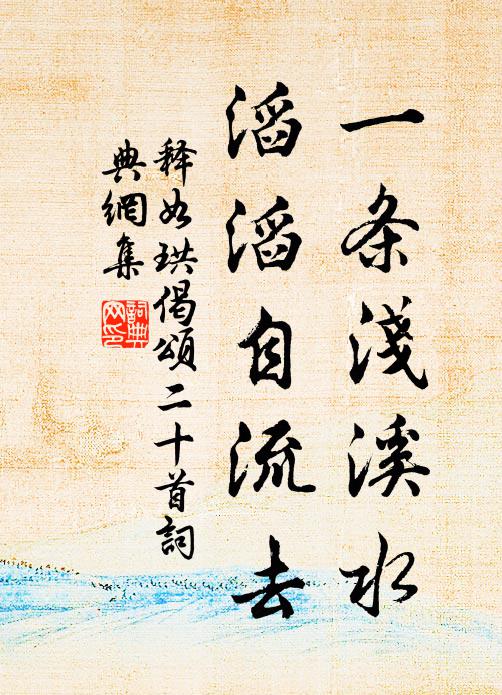 一条淺溪水
滔滔自流去
释如珙偈頌二十首詞
典網集
詞典
网印